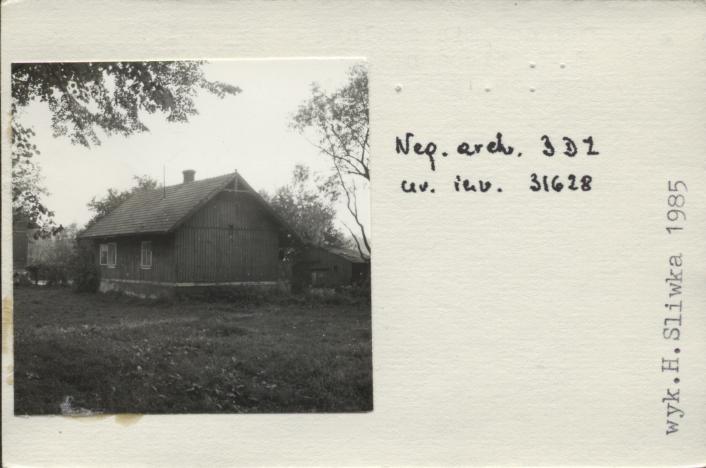 Neg. arch. 3 D 2
nr. inv. 31628
wyk.H.Sliwka 1985